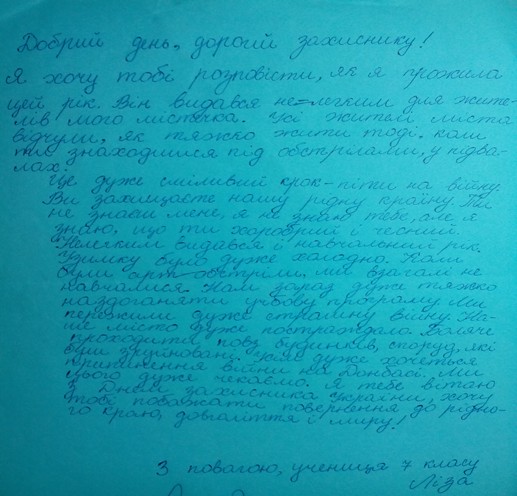 Добрий день, дорогий захиснику!
Я хочу тобі розповісти, як я прожила
цей рік. Він видався не=легким для жите-
лів мого містечка. Усі жителі міста
відчули, як тяжко жити тоді, коли
ти знаходишся під обстрілами, у підва-
лах.
Це дуже сміливий крок-піти на війну.
Ви захищаєте нашу рідну країну. Ти
не знаєш мене, я не знаю тебе, але я
знаю, що ти хоробрий і чесний.
Нелегким видався і навчальний рік.
Узимку було дуже холодно. Коли
були арт-обстріли, ми взагалі не
навчалися. Нам зараз дуже тяжко
наздоганяти учбову програму. Ми
пережили дуже страшну війну. На-
ше місто дуже постраждало. Боляче
проходити повз будинків, споруд, які
були зруйновані. Усім дуже хочеться
припинення війни на Донбасі. Ми
цього дуже чекаємо. Я тебе вітаю
з Днем захисника України, хочу
тобі побажати повернення до рідно-
го краю, довголіття і миру!
З повагою, учениця 7 класу
Ліза